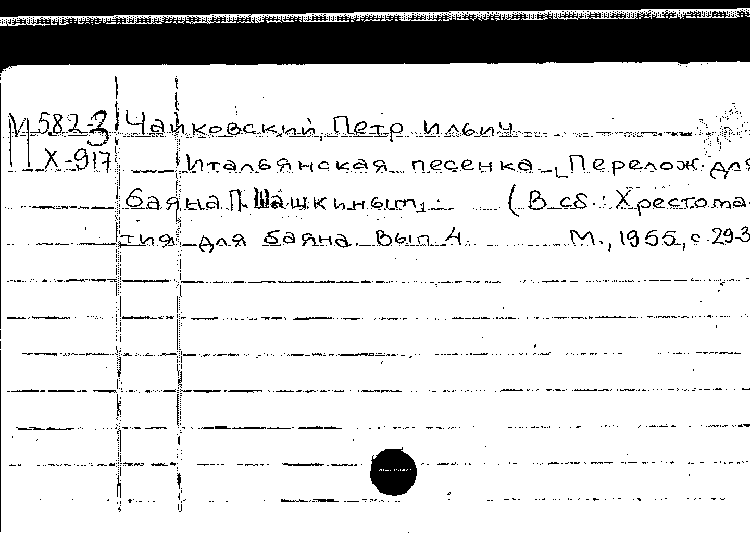 М 582-3 Чайковский, Петр Ильич
Х-917 Итальянская песенка. Перелож. для
баяна П. Шашкиным. (В сб.: Хрестома-
тия для баяна. Вып 4. М., 1955, с. 29-3